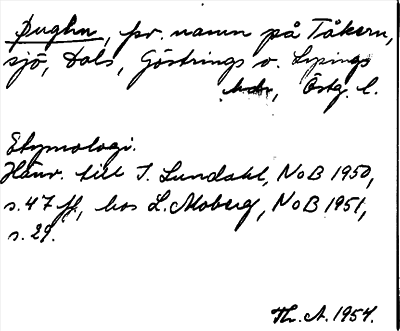 Dughn, fr. namn på Tåkern,
sjö, Dals, Göstrings o. Lysings
hdr, Östg. l.
Etymologi.
Hänv. till I. Lundahl, NoB 1950,
s. 47 ff, hos L. Moberg, NoB 1951,
s. 29.
Th. A. 1954.